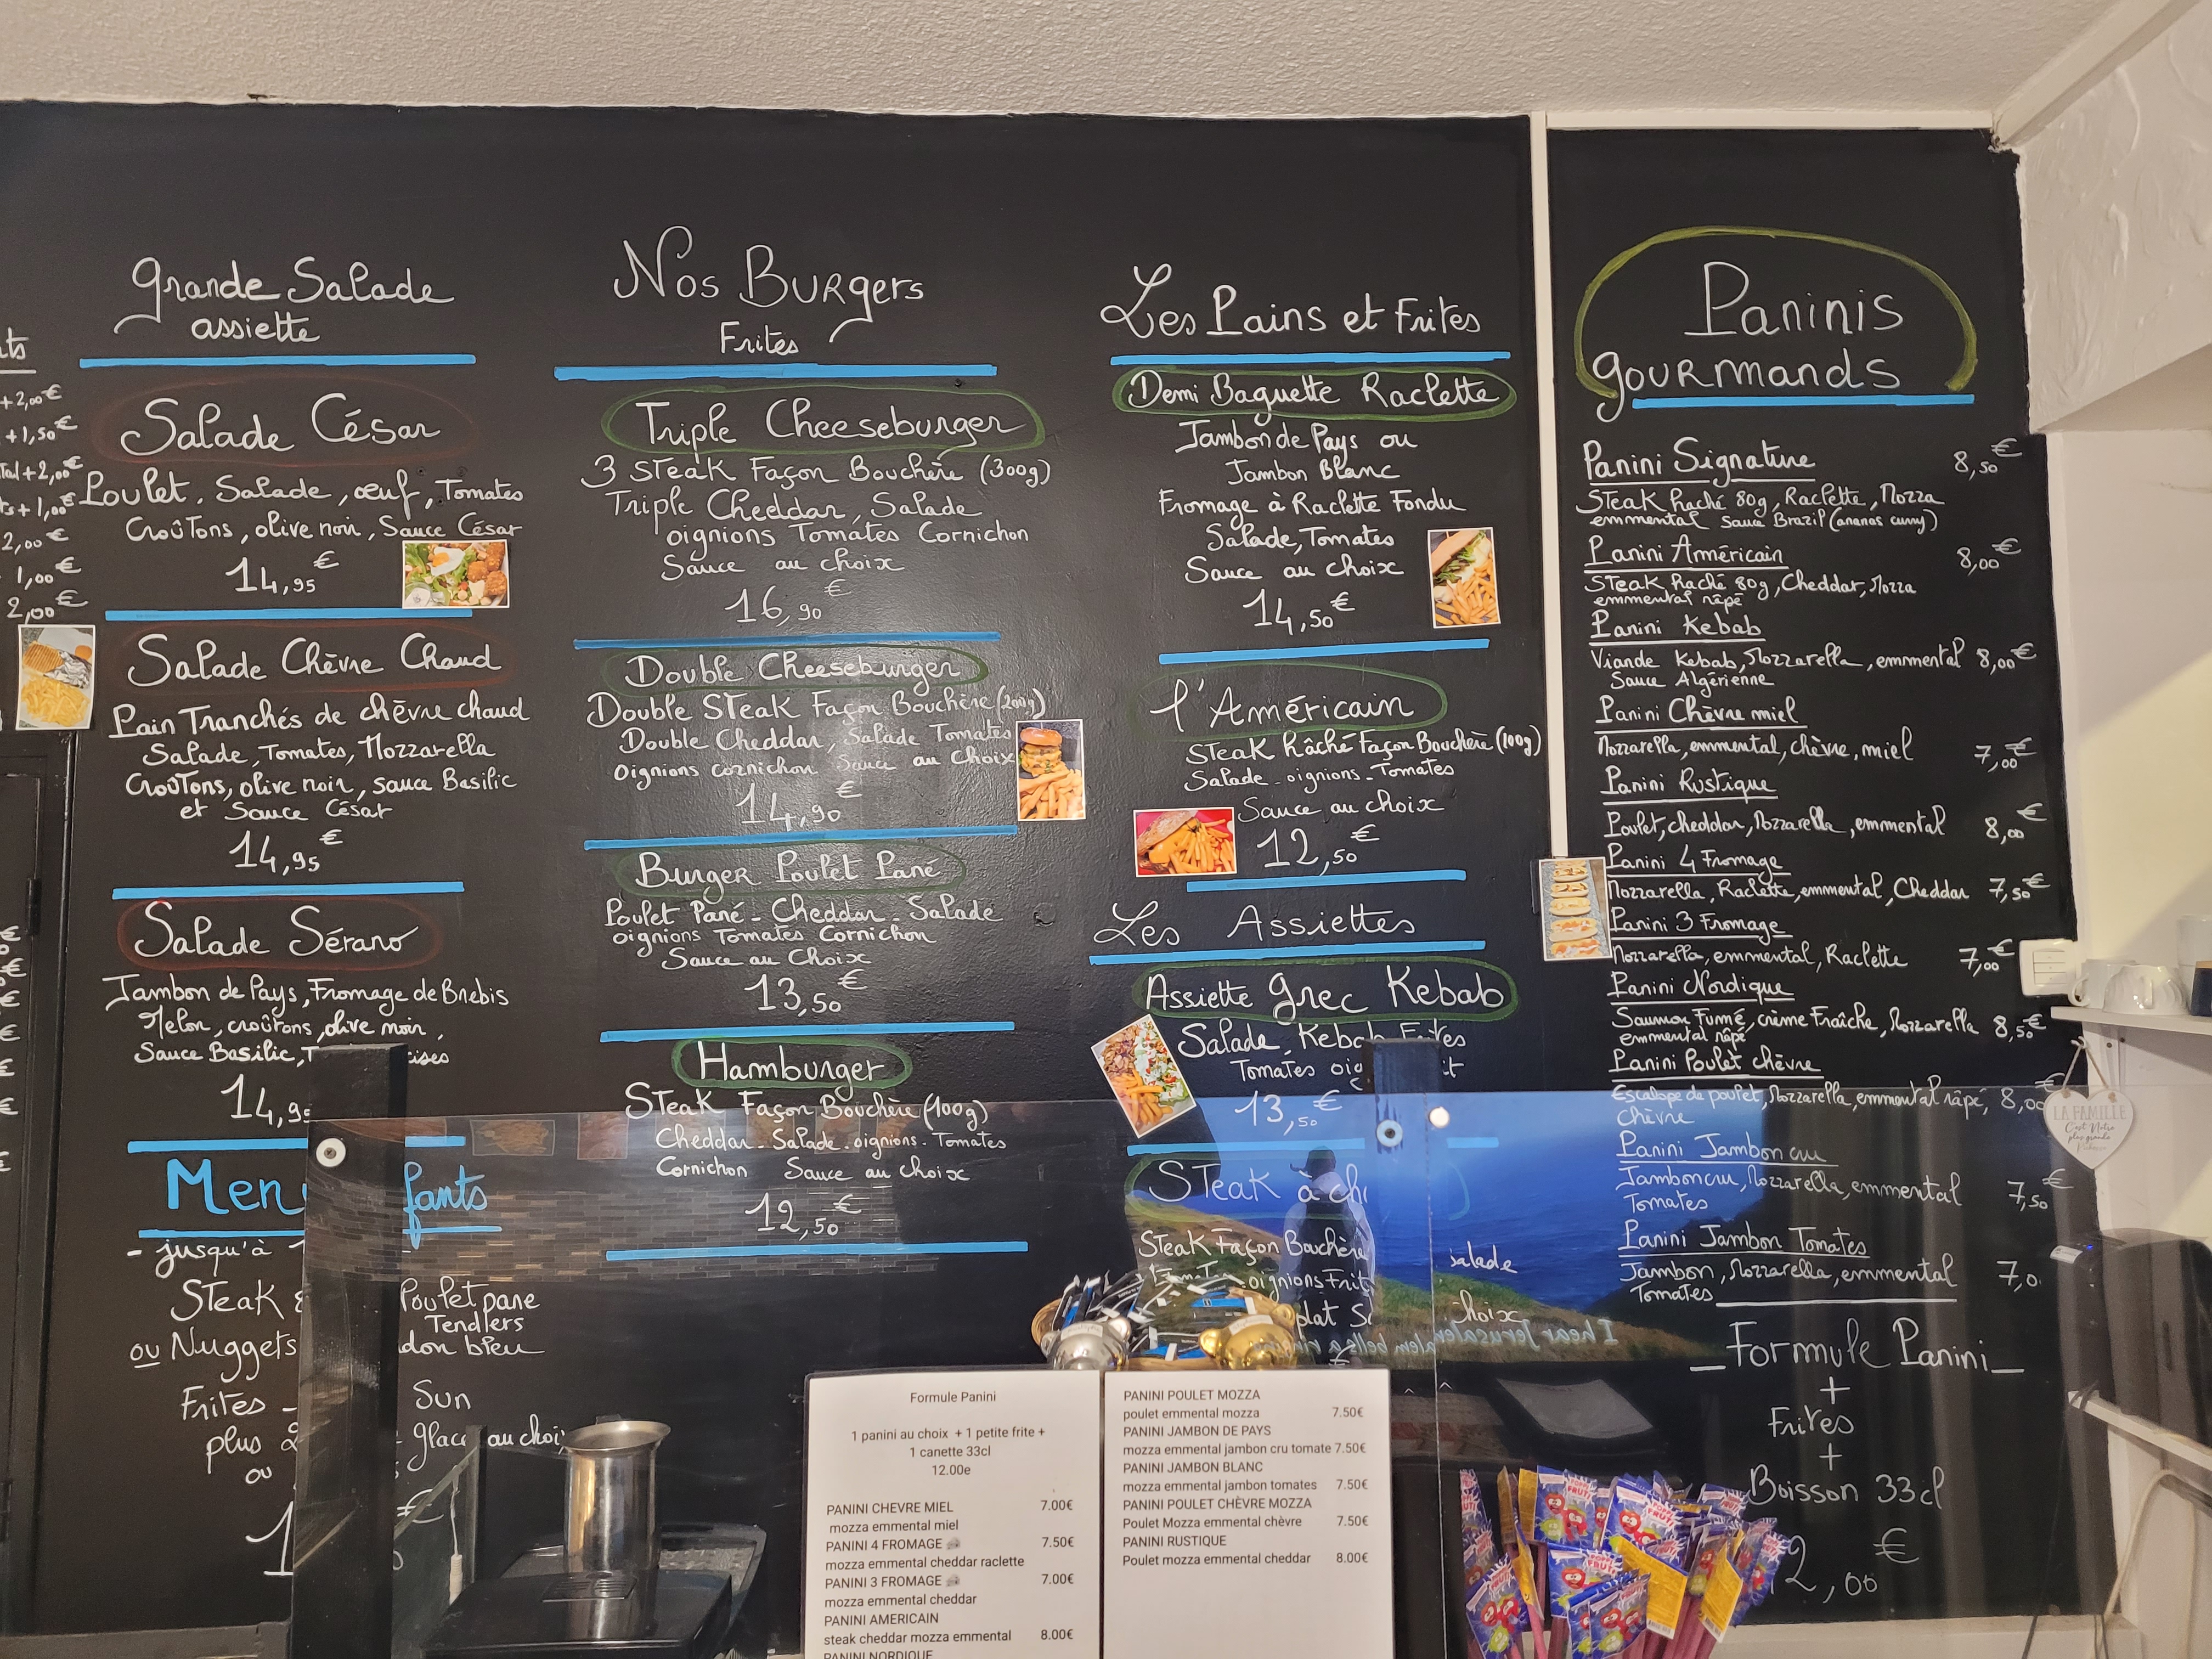 +2,00€
+1,50€
+2,00€
+1,00€
2,00€
1,00€
2,00€
Grande Salade
assiette
Salade César
Poulet, Salade, œuf, Tomates
Croûtons, olive noir, Sauce César
14,95€
Salade Chèvre Chaud
Pain Tranchés de chèvre chaud
Salade, Tomates, Mozzarella
Croûtons, olive noir, sauce Basilic
et Sauce César
14,95€
Salade Sérano
Jambon de Pays, Fromage de Brebis
Melon, croûtons, olive noir,
Sauce Basilic,
14,95
- jusqu'à
Steak
Poulet pane
Tenders
ou Nuggets
bleu
Frites -
Sun
plus
glace au choix
ou
Nos Burgers
Frites
Triple Cheeseburger
3 Steak Façon Bouchère (300g)
Triple Cheddar, Salade
oignions Tomates Cornichon
Sauce au choix
16,90€
Double Cheeseburger
Double Steak Façon Bouchère (200g)
Double Cheddar, Salade Tomates
Oignions cornichon Sauce au Choix
14,90€
Burger Poulet Pané
Poulet Pané - Cheddar - Salade
oignions Tomates Cornichon
Sauce au Choix
13,50€
Hamburger
Steak Façon Bouchère (100g)
Cheddar - Salade - oignions - Tomates
Cornichon Sauce au choix
12,50€
Les Pains et Frites
Demi Baguette Raclette
Jambon de Pays ou
Jambon Blanc
Fromage à Raclette Fondu
Salade, Tomates
Sauce au choix
14,50€
l'Américain
Steak hâché Façon Bouchère (100g)
Salade - oignions - Tomates
Sauce au choix
12,50€
Les Assiettes
Assiette grec Kebab
Salade, Kebab Frites
Tomates
13,50€
Steak à
Steak Façon Bouchère
salade
oignions
choix
I hear Jerusalem bells a ringing
Paninis
gourmands
Panini Signature 8,50€
Steak haché 80g, Raclette, Mozza
emmental sauce Brazil (ananas curry)
Panini Américain 8,00€
Steak haché 80g, Cheddar, Mozza
emmental râpé
Panini Kebab
Viande Kebab, Mozzarella, emmental 8,00€
Sauce Algérienne
Panini Chèvre miel
Mozzarella, emmental, chèvre, miel 7,00€
Panini Rustique
Poulet, cheddar, Mozzarella, emmental 8,00€
Panini 4 Fromage
Mozzarella, Raclette, emmental, Cheddar 7,50€
Panini 3 Fromage
Mozzarella, emmental, Raclette 7,00€
Panini Nordique
Saumon Fumé, crème Fraîche, Mozzarella 8,50€
emmental râpé
Panini Poulet chèvre
Escalope de poulet, Mozzarella, emmental râpé, 8,00€
Chèvre
Panini Jambon cru
Jambon cru, Mozzarella, emmental 7,50€
Tomates
Panini Jambon Tomates
Jambon, Mozzarella, emmental 7,0
Tomates
_Formule Panini_
+
Frites
+
Boisson 33cl
2,00€
LA FAMILLE
C'est Notre
plus grande
Formule Panini
1 panini au choix + 1 petite frite +
1 canette 33cl
12.00e
PANINI CHEVRE MIEL 7.00€
mozza emmental miel
PANINI 4 FROMAGE 7.50€
mozza emmental cheddar raclette
PANINI 3 FROMAGE 7.00€
mozza emmental cheddar
PANINI AMERICAIN
steak cheddar mozza emmental 8.00€
PANINI NORDIQUE
PANINI POULET MOZZA
poulet emmental mozza 7.50€
PANINI JAMBON DE PAYS
mozza emmental jambon cru tomate 7.50€
PANINI JAMBON BLANC
mozza emmental jambon tomates 7.50€
PANINI POULET CHÈVRE MOZZA
Poulet Mozza emmental chèvre 7.50€
PANINI RUSTIQUE
Poulet mozza emmental cheddar 8.00€